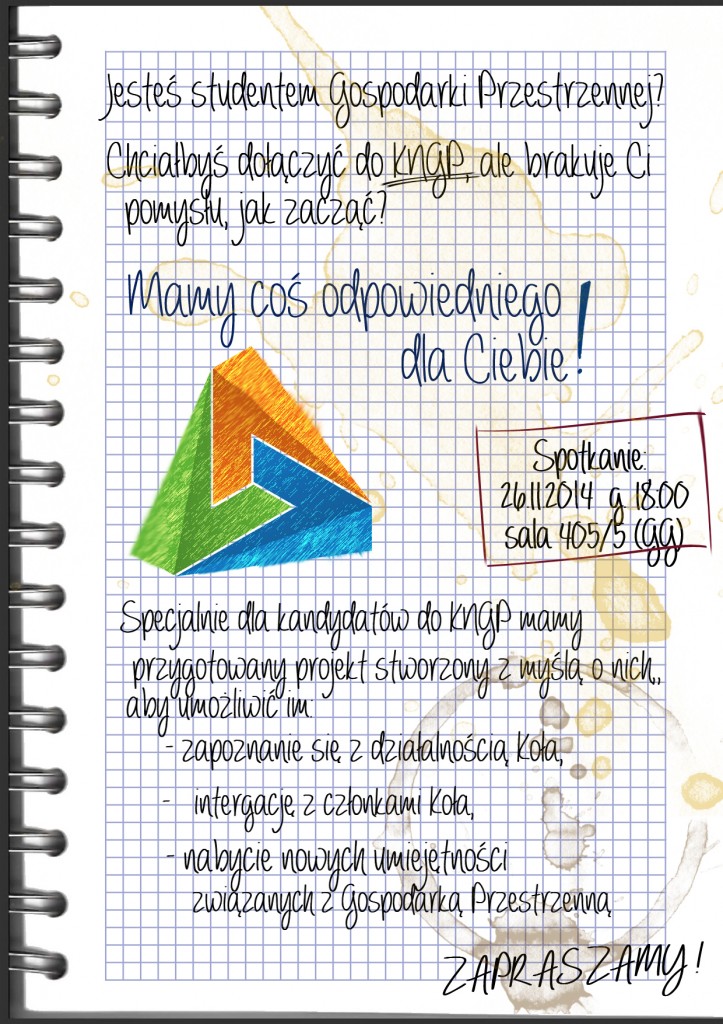 Jesteś studentem Gospodarki Przestrzennej?
Chciałbyś dołączyć do KNGP, ale brakuje Ci
pomysłu, jak zacząć?
Mamy coś odpowiedniego
dla Ciebie!
Spotkanie:
26.11.2014 g. 18:00
sala 405/5 (GG)
Specjalnie dla kandydatów do KNGP mamy
przygotowany projekt stworzony z myślą o nich,,
aby umożliwić im:
- zapoznanie się z działalnością Koła,
- intergację z członkami Koła,
- nabycie nowych umiejętności
związanych z Gospodarką Przestrzenną
ZAPRASZAMY!